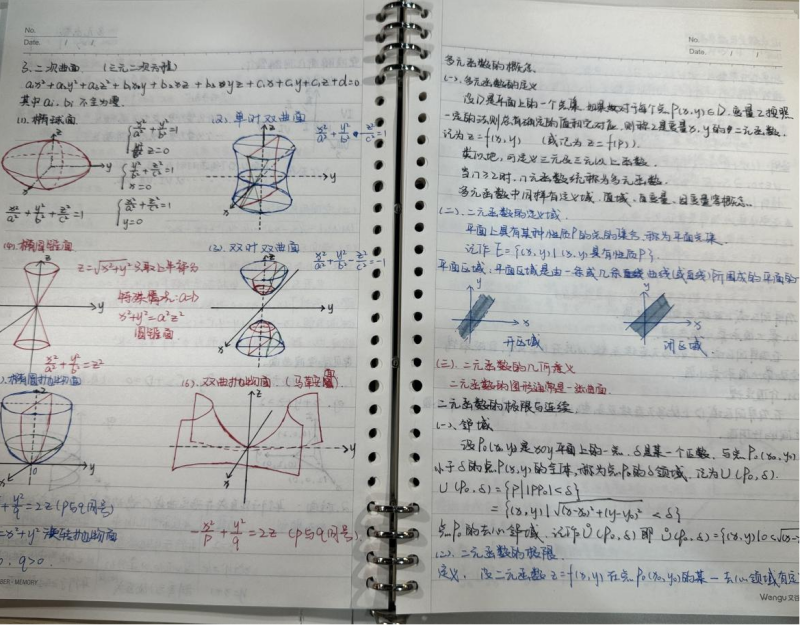 No.
Date. / /
3.二次曲面 (三元二次方程)
a₁x²+a₂y²+a₃z²+b₁xy+b₂xz+b₃yz+c₁x+c₂y+c₃z+d=0
其中ai.bi不全为零
(1).椭球面
x²/a²+y²/b²+z²/c²=1
{x²/a²+y²/b²=1
z=0
{y²/b²+z²/c²=1
x=0
{x²/a²+z²/c²=1
y=0
(2).单叶双曲面
x²/a²+y²/b²-z²/c²=1
椭圆锥面
z=√x²+y² 只取上半部分
特殊情况:a=b
x²+y²=a²z²
圆锥面
x²/a²+y²/b²=z²
(3).双叶双曲面
x²/a²+y²/b²-z²/c²=-1
椭圆抛物面
+y²/q=2z(p与q同号)
=x²+y² 旋转抛物面
q>0.
(6).双曲抛物面.(马鞍面)
-x²/p+y²/q=2z (p与q同号)
MEMORY
No.
Date.
多元函数的概念
(一).多元函数的定义
设D是平面上的一个点集.如果对于每个点P(x,y)∈D.变量z按照
一定的法则总有确定的值和它对应.则称z是变量x.y的二元函数.
记为z=f(x,y) (或记为z=f(P)).
类似地,可定义三元及三元以上函数.
当n≥2时.n元函数统称为多元函数.
多元函数中同样有定义域.值域.自变量.因变量等概念.
(二).二元函数的定义域.
平面上具有某种性质P的点的集合,称为平面点集.
记作E={(x,y)|(x,y)具有性质P}.
平面区域:平面区域是由一条或几条曲线(或直线)所围成的平面的一
开区域.
闭区域.
(三).二元函数的几何意义
二元函数的图形通常是一张曲面.
二元函数的极限与连续
(一).邻域
设P₀(x₀,y₀)是xoy平面上的一点.δ是某一个正数.与点P₀(x₀,y₀)
小于δ的点P(x,y)的全体.称为点P₀的δ领域.记为U(P₀,δ).
U(P₀,δ)={P||PP₀|<δ}
={(x,y)|√(x-x₀)²+(y-y₀)²<δ}
点P₀的去心邻域.记作Ů(P₀,δ)即Ů(P₀,δ)={(x,y)|0<√(x-
(二).二元函数的极限.
定义.设二元函数z=f(x,y)在点P₀(x₀,y₀)的某一去心领域有定
Wengu